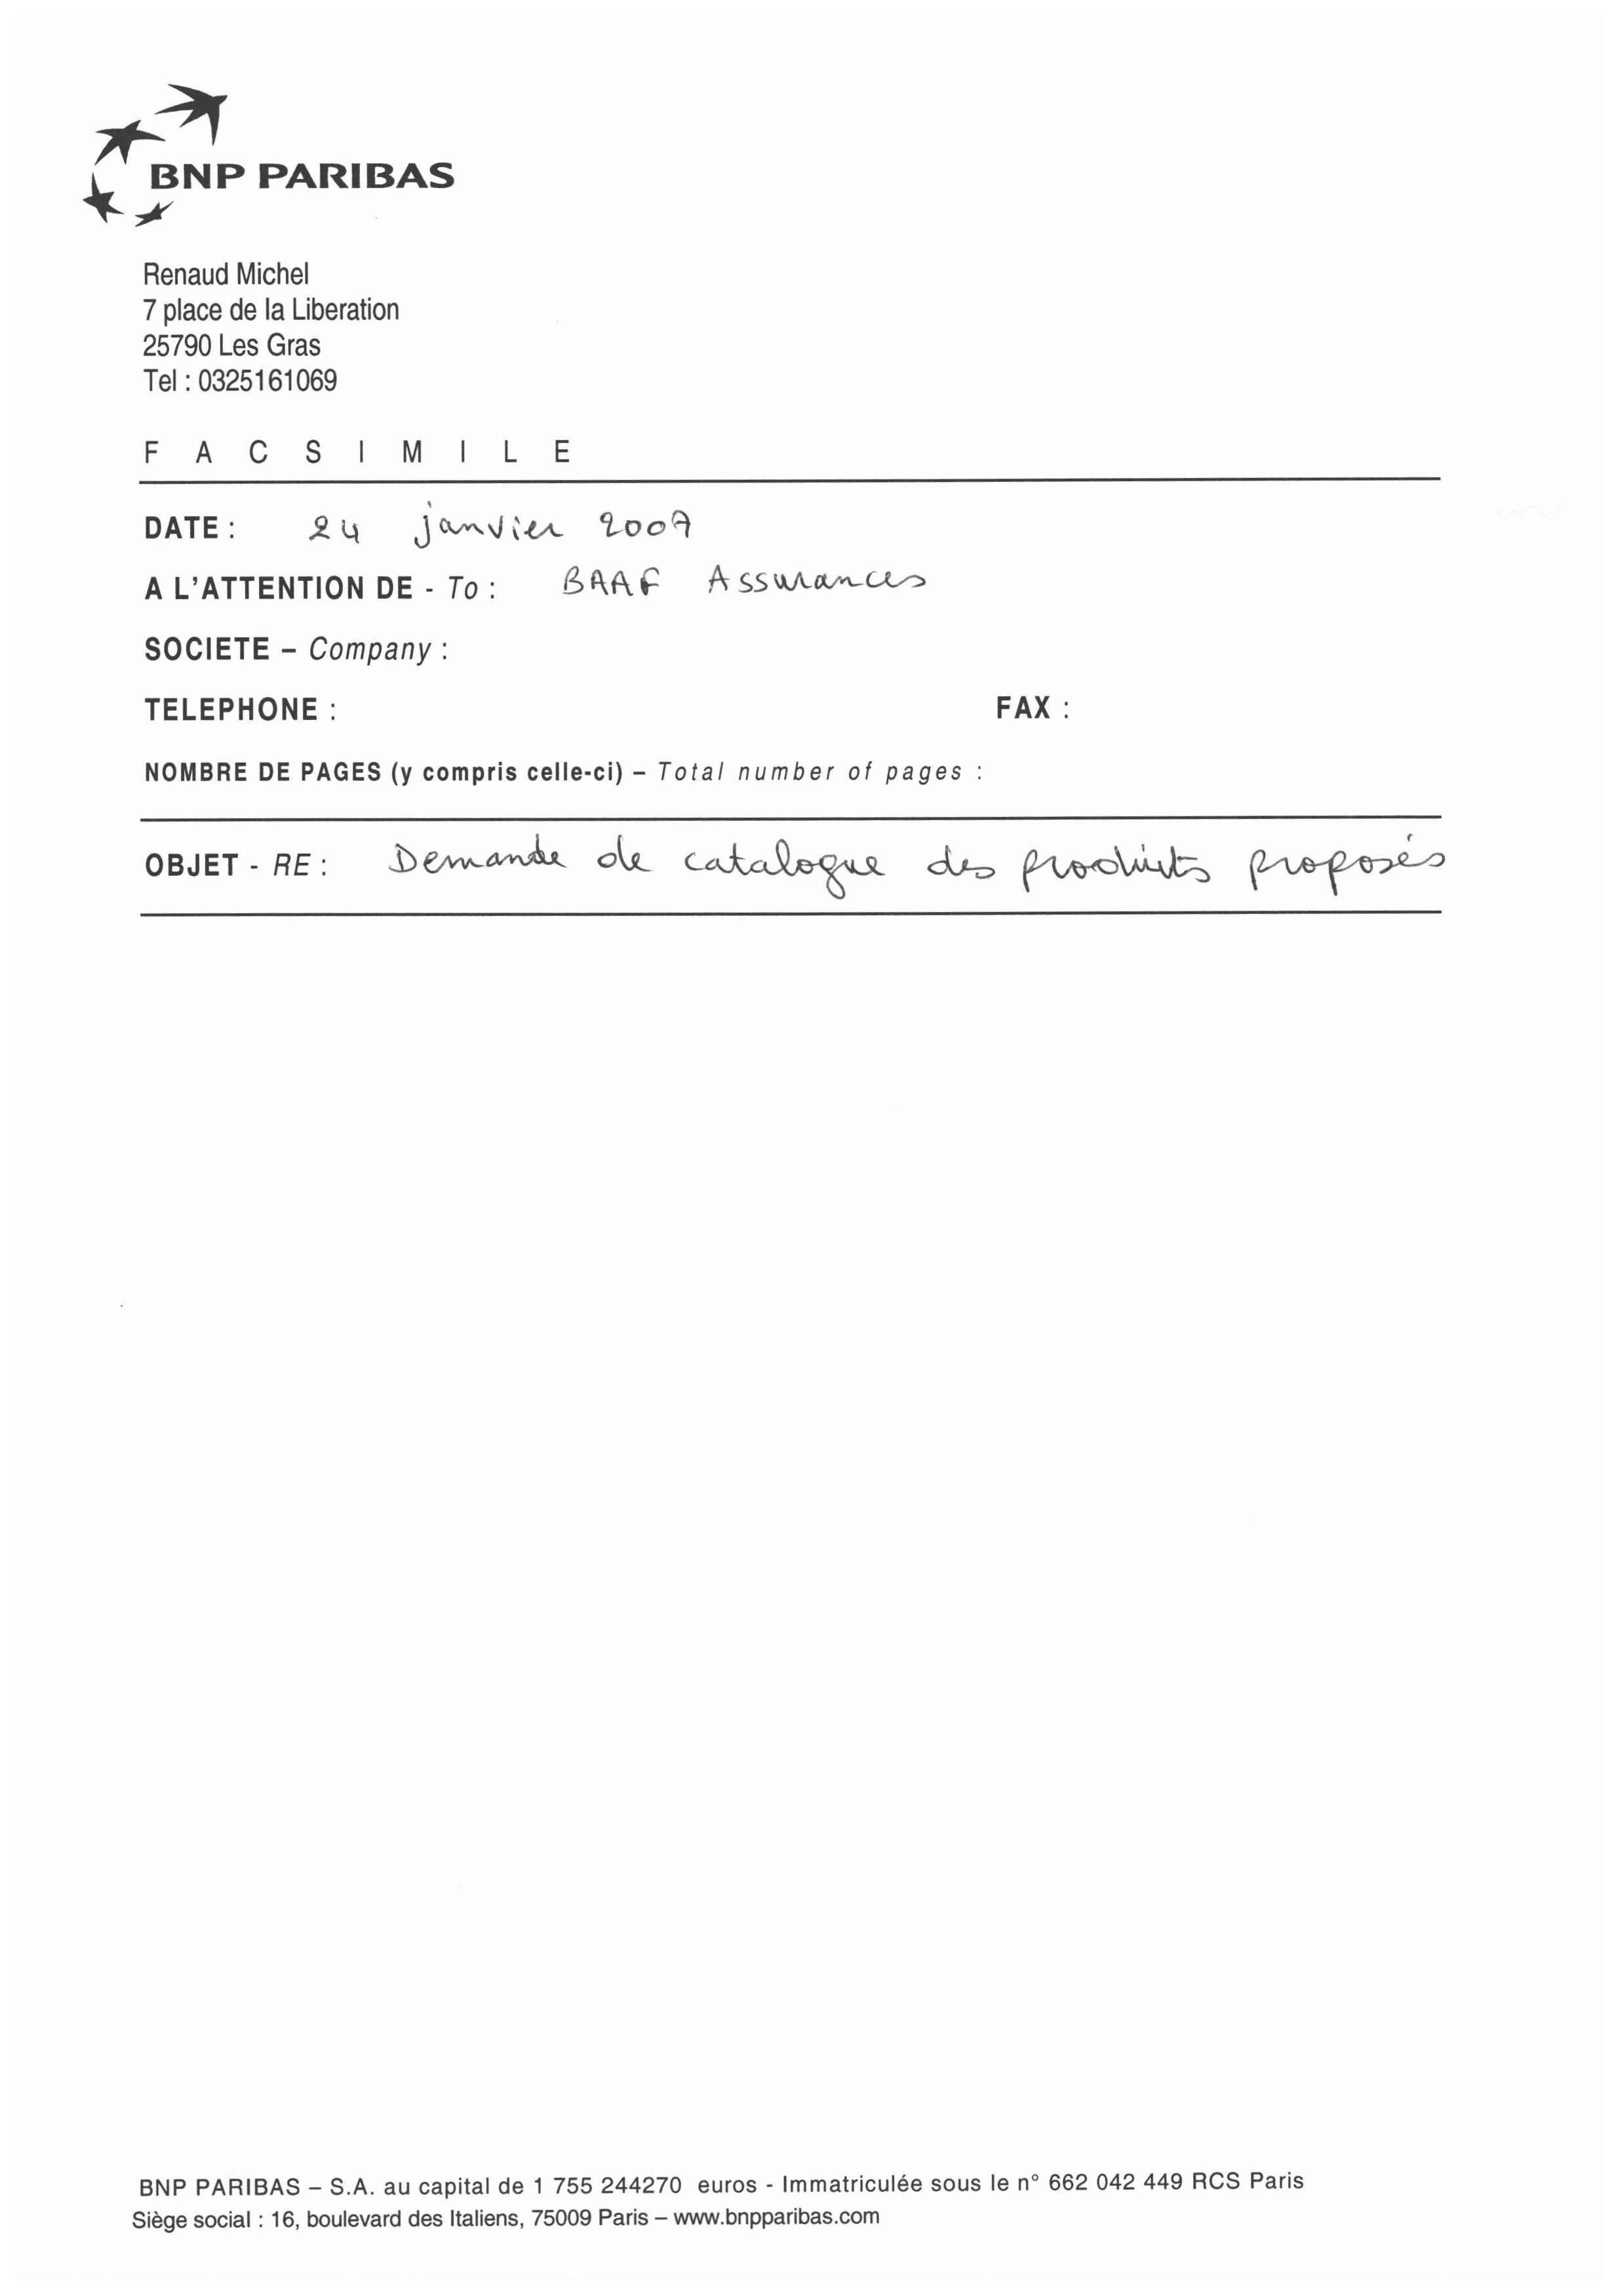 BNP PARIBAS
Renaud Michel
7 place de la Liberation
25790 Les Gras
Tel : 0325161069
F A C S I M I L E
DATE : 24 janvier 2007
A L'ATTENTION DE - To : BAAF Assurances
SOCIETE – Company :
TELEPHONE : FAX :
NOMBRE DE PAGES (y compris celle-ci) – Total number of pages :
OBJET - RE : Demande de catalogue des produits proposés
BNP PARIBAS – S.A. au capital de 1 755 244270 euros - Immatriculée sous le n° 662 042 449 RCS Paris
Siège social : 16, boulevard des Italiens, 75009 Paris – www.bnpparibas.com